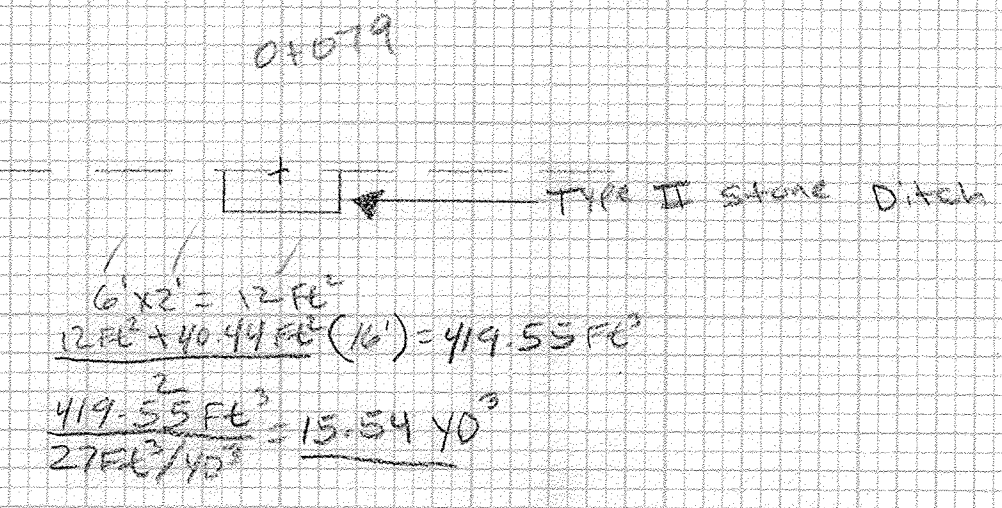 0+079
Type II Stone Ditch
6' x 2' = 12 Ft²
12 Ft² + 40.44 Ft² (16') = 419.55 Ft³
2
419.55 Ft³ = 15.54 YD³
27 Ft³/YD³